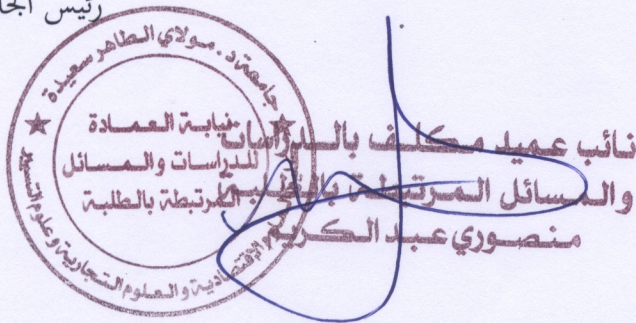 رئيس الجا
جامعة د. مولاي الطاهر سعيدة
نيابة العمادة
للدراسات والمسائل
المرتبطة بالطلبة
الاقتصادية والعلوم التجارية وعلوم التسيير
نائب عميد مكلف بالدراسات
والمسائل المرتبطة
منصوري عبد الكريم